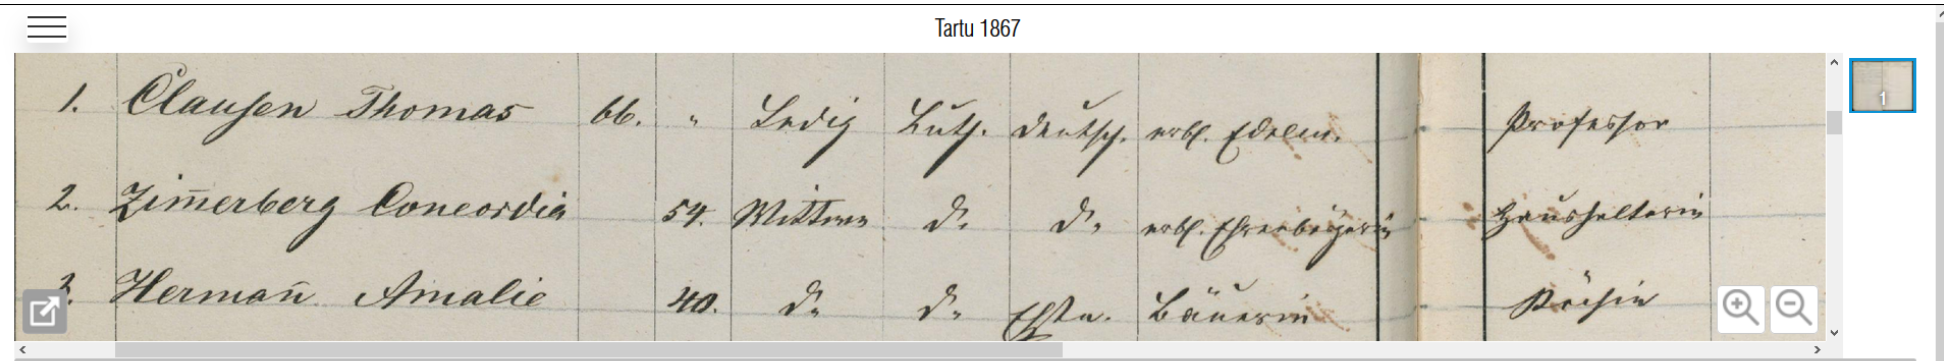 Tartu 1867
1. Clausen Thomas 66. " Ledig Luth. deutsch. erbl. Edelm. Professor
2. Zim̅erberg Concordia 54. Wittwe d. d. erbl. Ehrenbürgerin Haushälterin
3. Herman̅ Amalie 40. d. d. Ehstn. Bäuerin Köchin
1